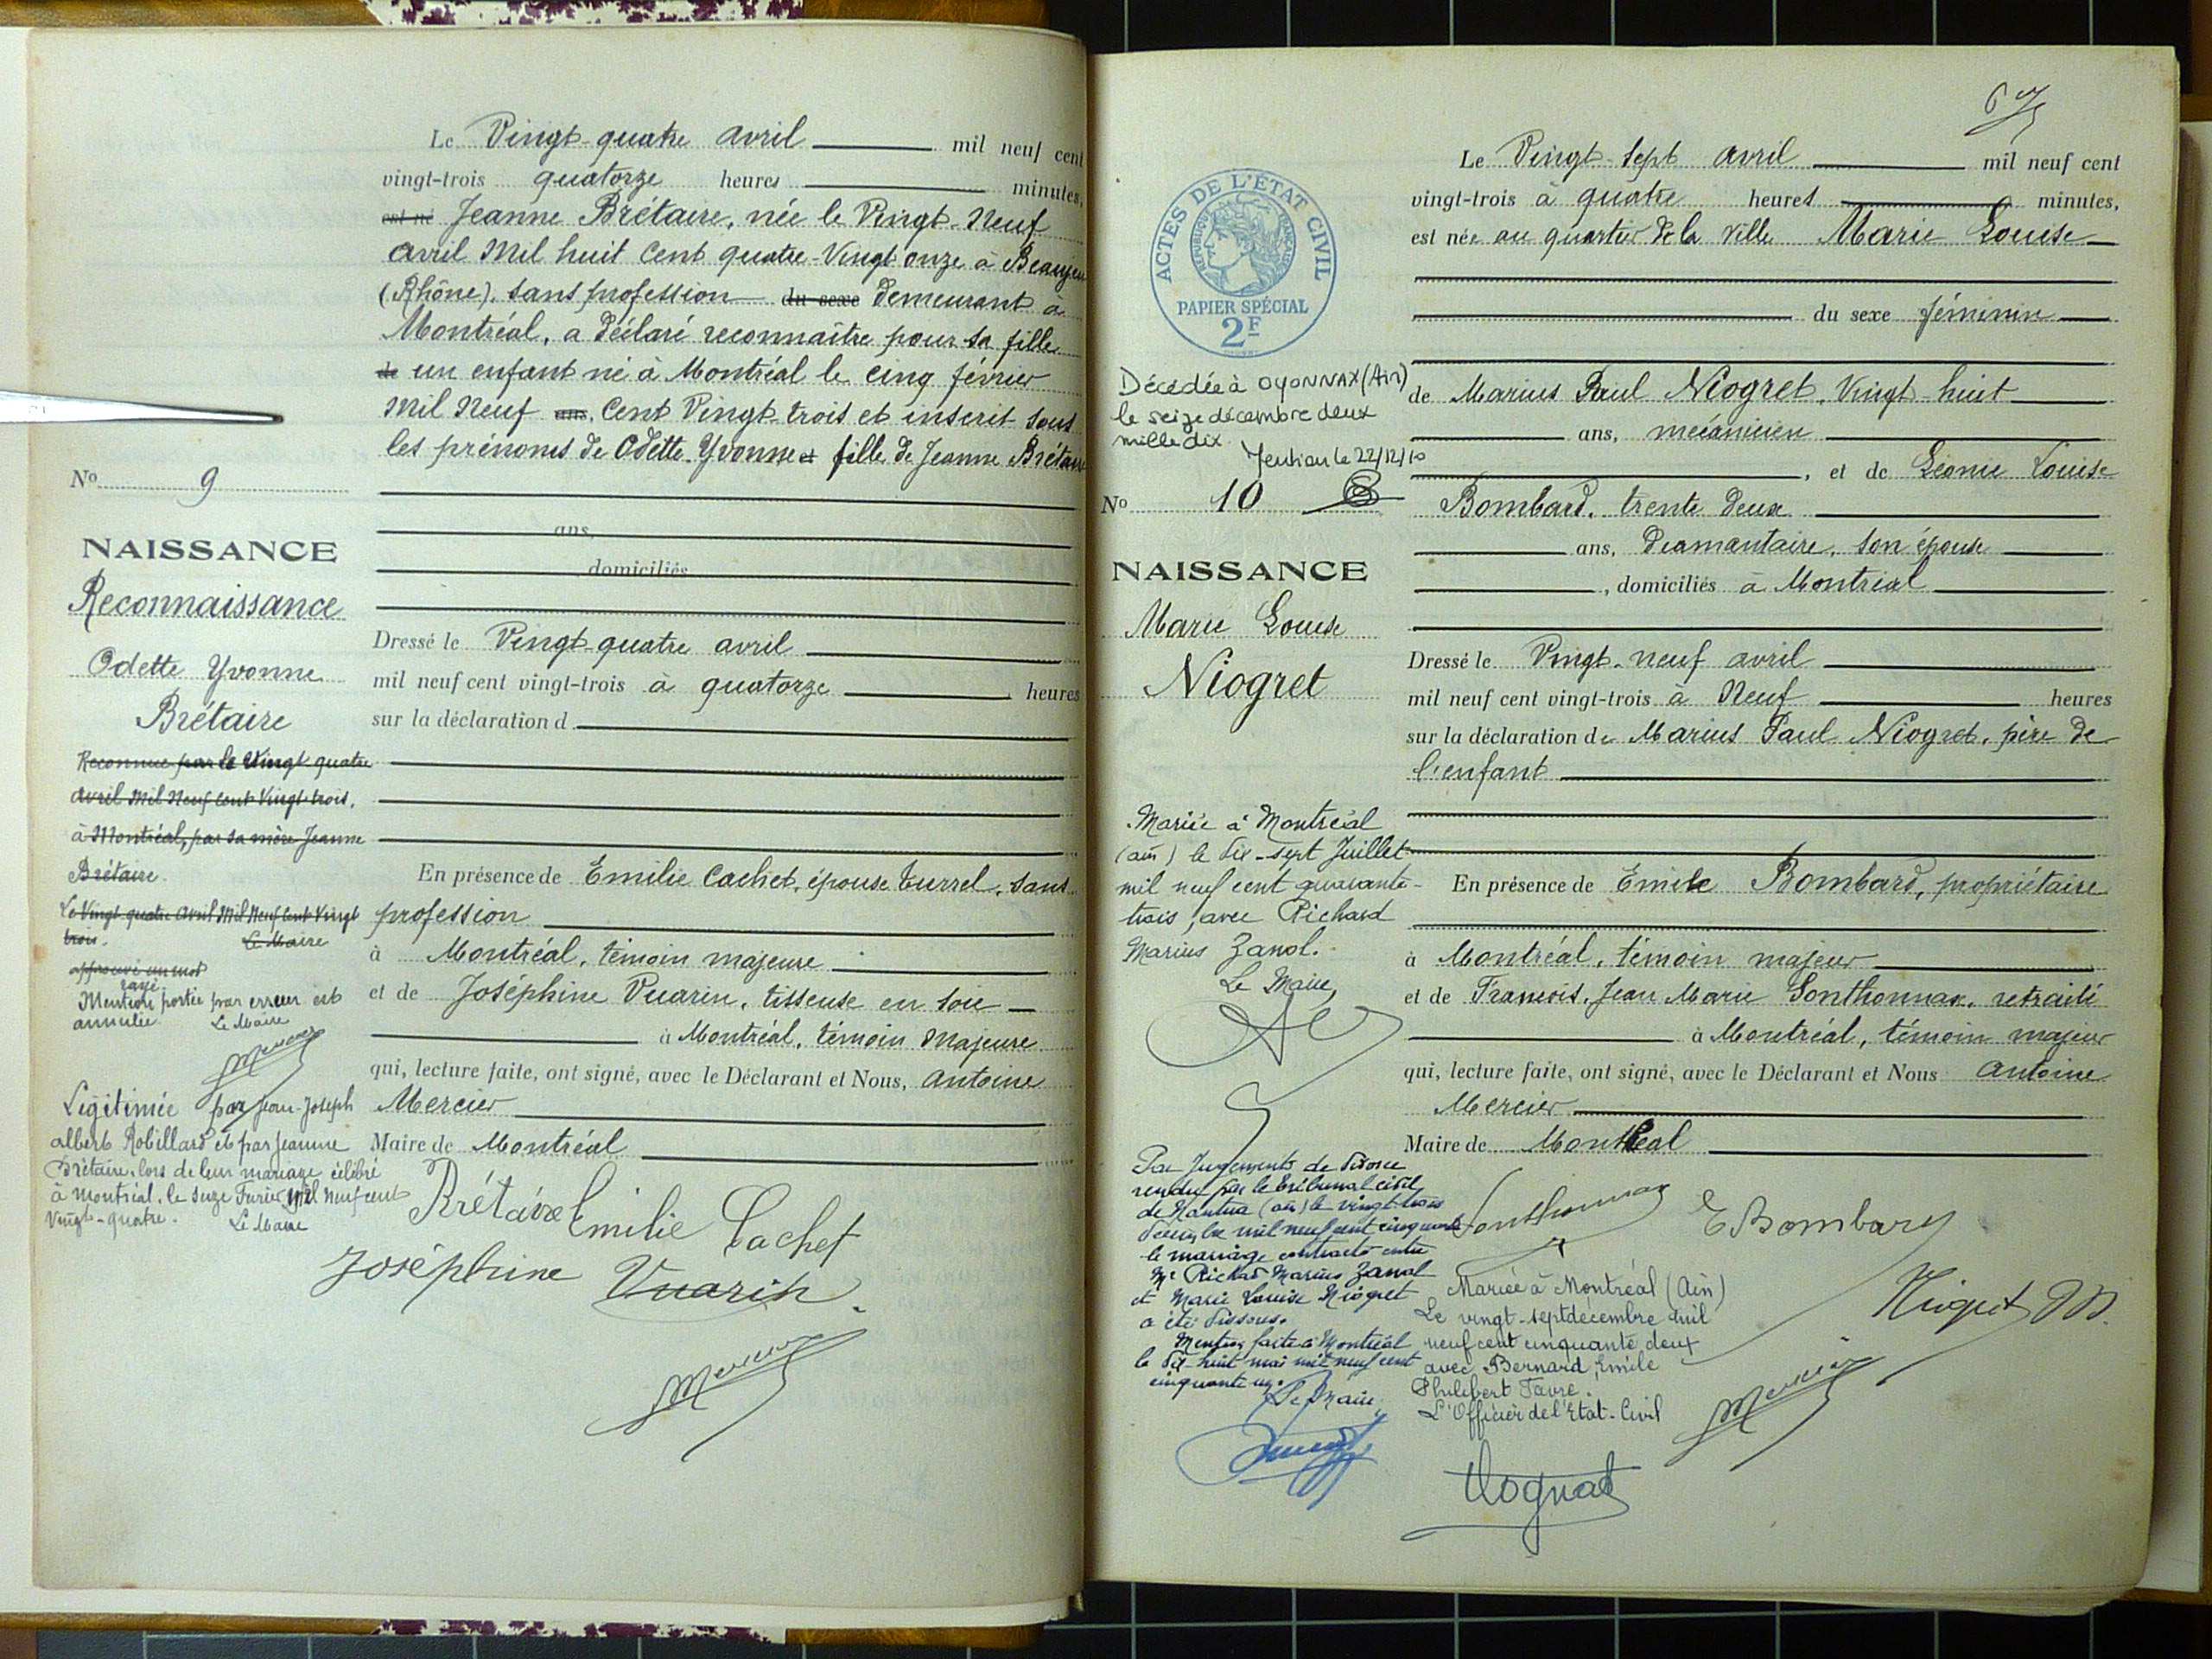 Le Vingt-quatre avril mil neuf cent
vingt-trois quatorze heures minutes,
est né Jeanne Brétaire, née le Vingt-Neuf
avril Mil huit Cent quatre-Vingt onze à Beaujeu
(Rhône), sans profession du sexe demeurant à
Montréal, a déclaré reconnaître pour sa fille
de un enfant né à Montréal le cinq février
Mil Neuf ans, Cent Vingt trois et inscrit sous
les prénoms de Odette Yvonne et fille de Jeanne Brétaire
No 9
ans,
domiciliés
NAISSANCE
Reconnaissance
Odette Yvonne
Brétaire
Reconnue par le Vingt quatre
avril Mil Neuf cent Vingt trois,
à Montréal, par sa mère Jeanne
Brétaire.
Le Vingt quatre avril Mil Neuf Cent Vingt
trois. Le Maire
approuvé un mot
rayé
Mention portée par erreur est
annulée. Le Maire
Mercier
Légitimée par Jean-Joseph
albert Robillard et par Jeanne
Brétaire, lors de leur mariage célébré
à Montréal, le seize Février Mil neuf cent
Vingt-quatre. Le Maire
Dressé le Vingt-quatre avril
mil neuf cent vingt-trois à quatorze heures
sur la déclaration d
En présence de Emilie Cachet, épouse Turrel, sans
profession
à Montréal, témoin majeure
et de Joséphine Vuarin, tisseuse en soie
à Montréal, témoin Majeure
qui, lecture faite, ont signé, avec le Déclarant et Nous, antoine
Mercier
Maire de Montréal
Brétaire Emilie Cachet
Joséphine Vuarin
Mercier
67
ACTES DE L'ÉTAT CIVIL
RÉPUBLIQUE FRANÇAISE
PAPIER SPÉCIAL
2F
Le Vingt-sept avril mil neuf cent
vingt-trois à quatre heures minutes,
est née au quartier de la ville Marie Louise
du sexe féminin
de Marius Paul Niogret, Vingt-huit
ans, mécanicien
, et de Léonie Louise
Bombard, trente deux
ans, Diamantaire, son épouse
, domiciliés à Montréal
Décédée à OYONNAX (Ain)
le seize décembre deux
mille dix.
le 22/12/10
No 10
NAISSANCE
Marie Louise
Niogret
Mariée à Montréal
(ain) le dix-sept Juillet
mil neuf cent quarante-
trois, avec Richard
Marius Zanol.
Le Maire,
Par Jugement de divorce
rendu par le tribunal civil
de Nantua (ain) le vingt-trois
décembre mil neuf cent cinquante
le mariage contracté entre
Mr Richard Marius Zanol
et Marie Louise Niogret
a été dissous.
Mention faite à Montréal
le dix-huit mai mil neuf cent
cinquante un.
Le Maire,
Dressé le Vingt-neuf avril
mil neuf cent vingt-trois à Neuf heures
sur la déclaration de Marius Paul Niogret, père de
l'enfant
En présence de Emile Bombard, propriétaire
à Montréal, témoin majeur
et de François, Jean Marie Sonthonnax, retraité
à Montréal, témoin majeur
qui, lecture faite, ont signé, avec le Déclarant et Nous antoine
Mercier
Maire de Montréal
Sonthonnax E Bombard
Niogret M.
Mariée à Montréal (Ain)
Le vingt-sept décembre mil
neuf cent cinquante deux
avec Bernard, Emile
Philibert Favre.
L'Officier de l'Etat-Civil
Mercier